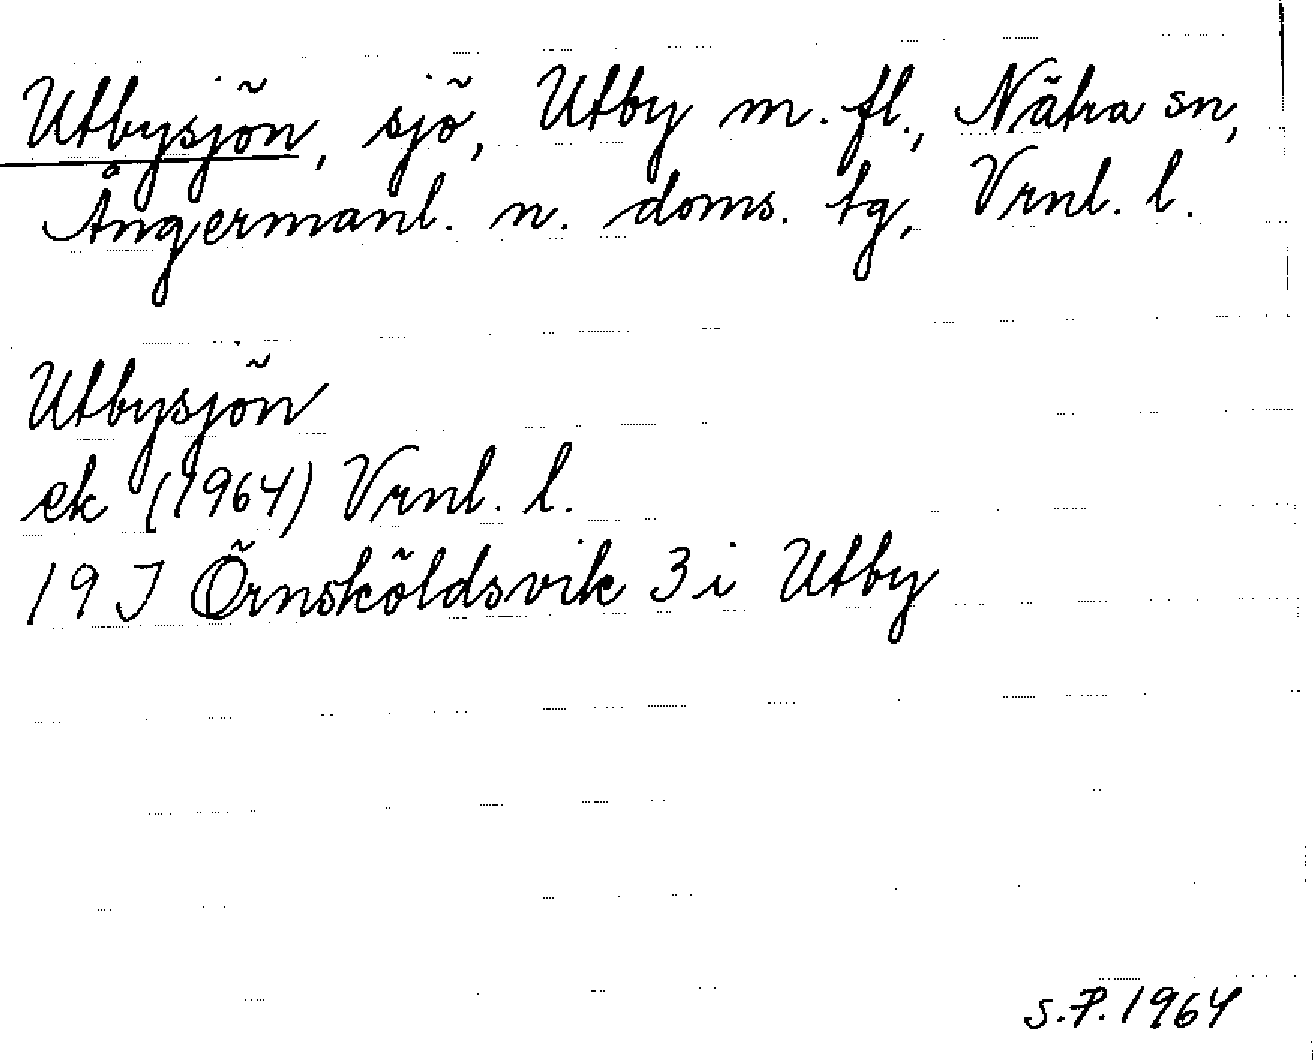 Utbysjön, sjö, Utby m. fl., Nätra sn,
Ångermanl. n. doms. tg, Vrnl. l.
Utbysjön
ek (1964) Vrnl. l.
19 J Örnsköldsvik 3 i Utby
S.P. 1964